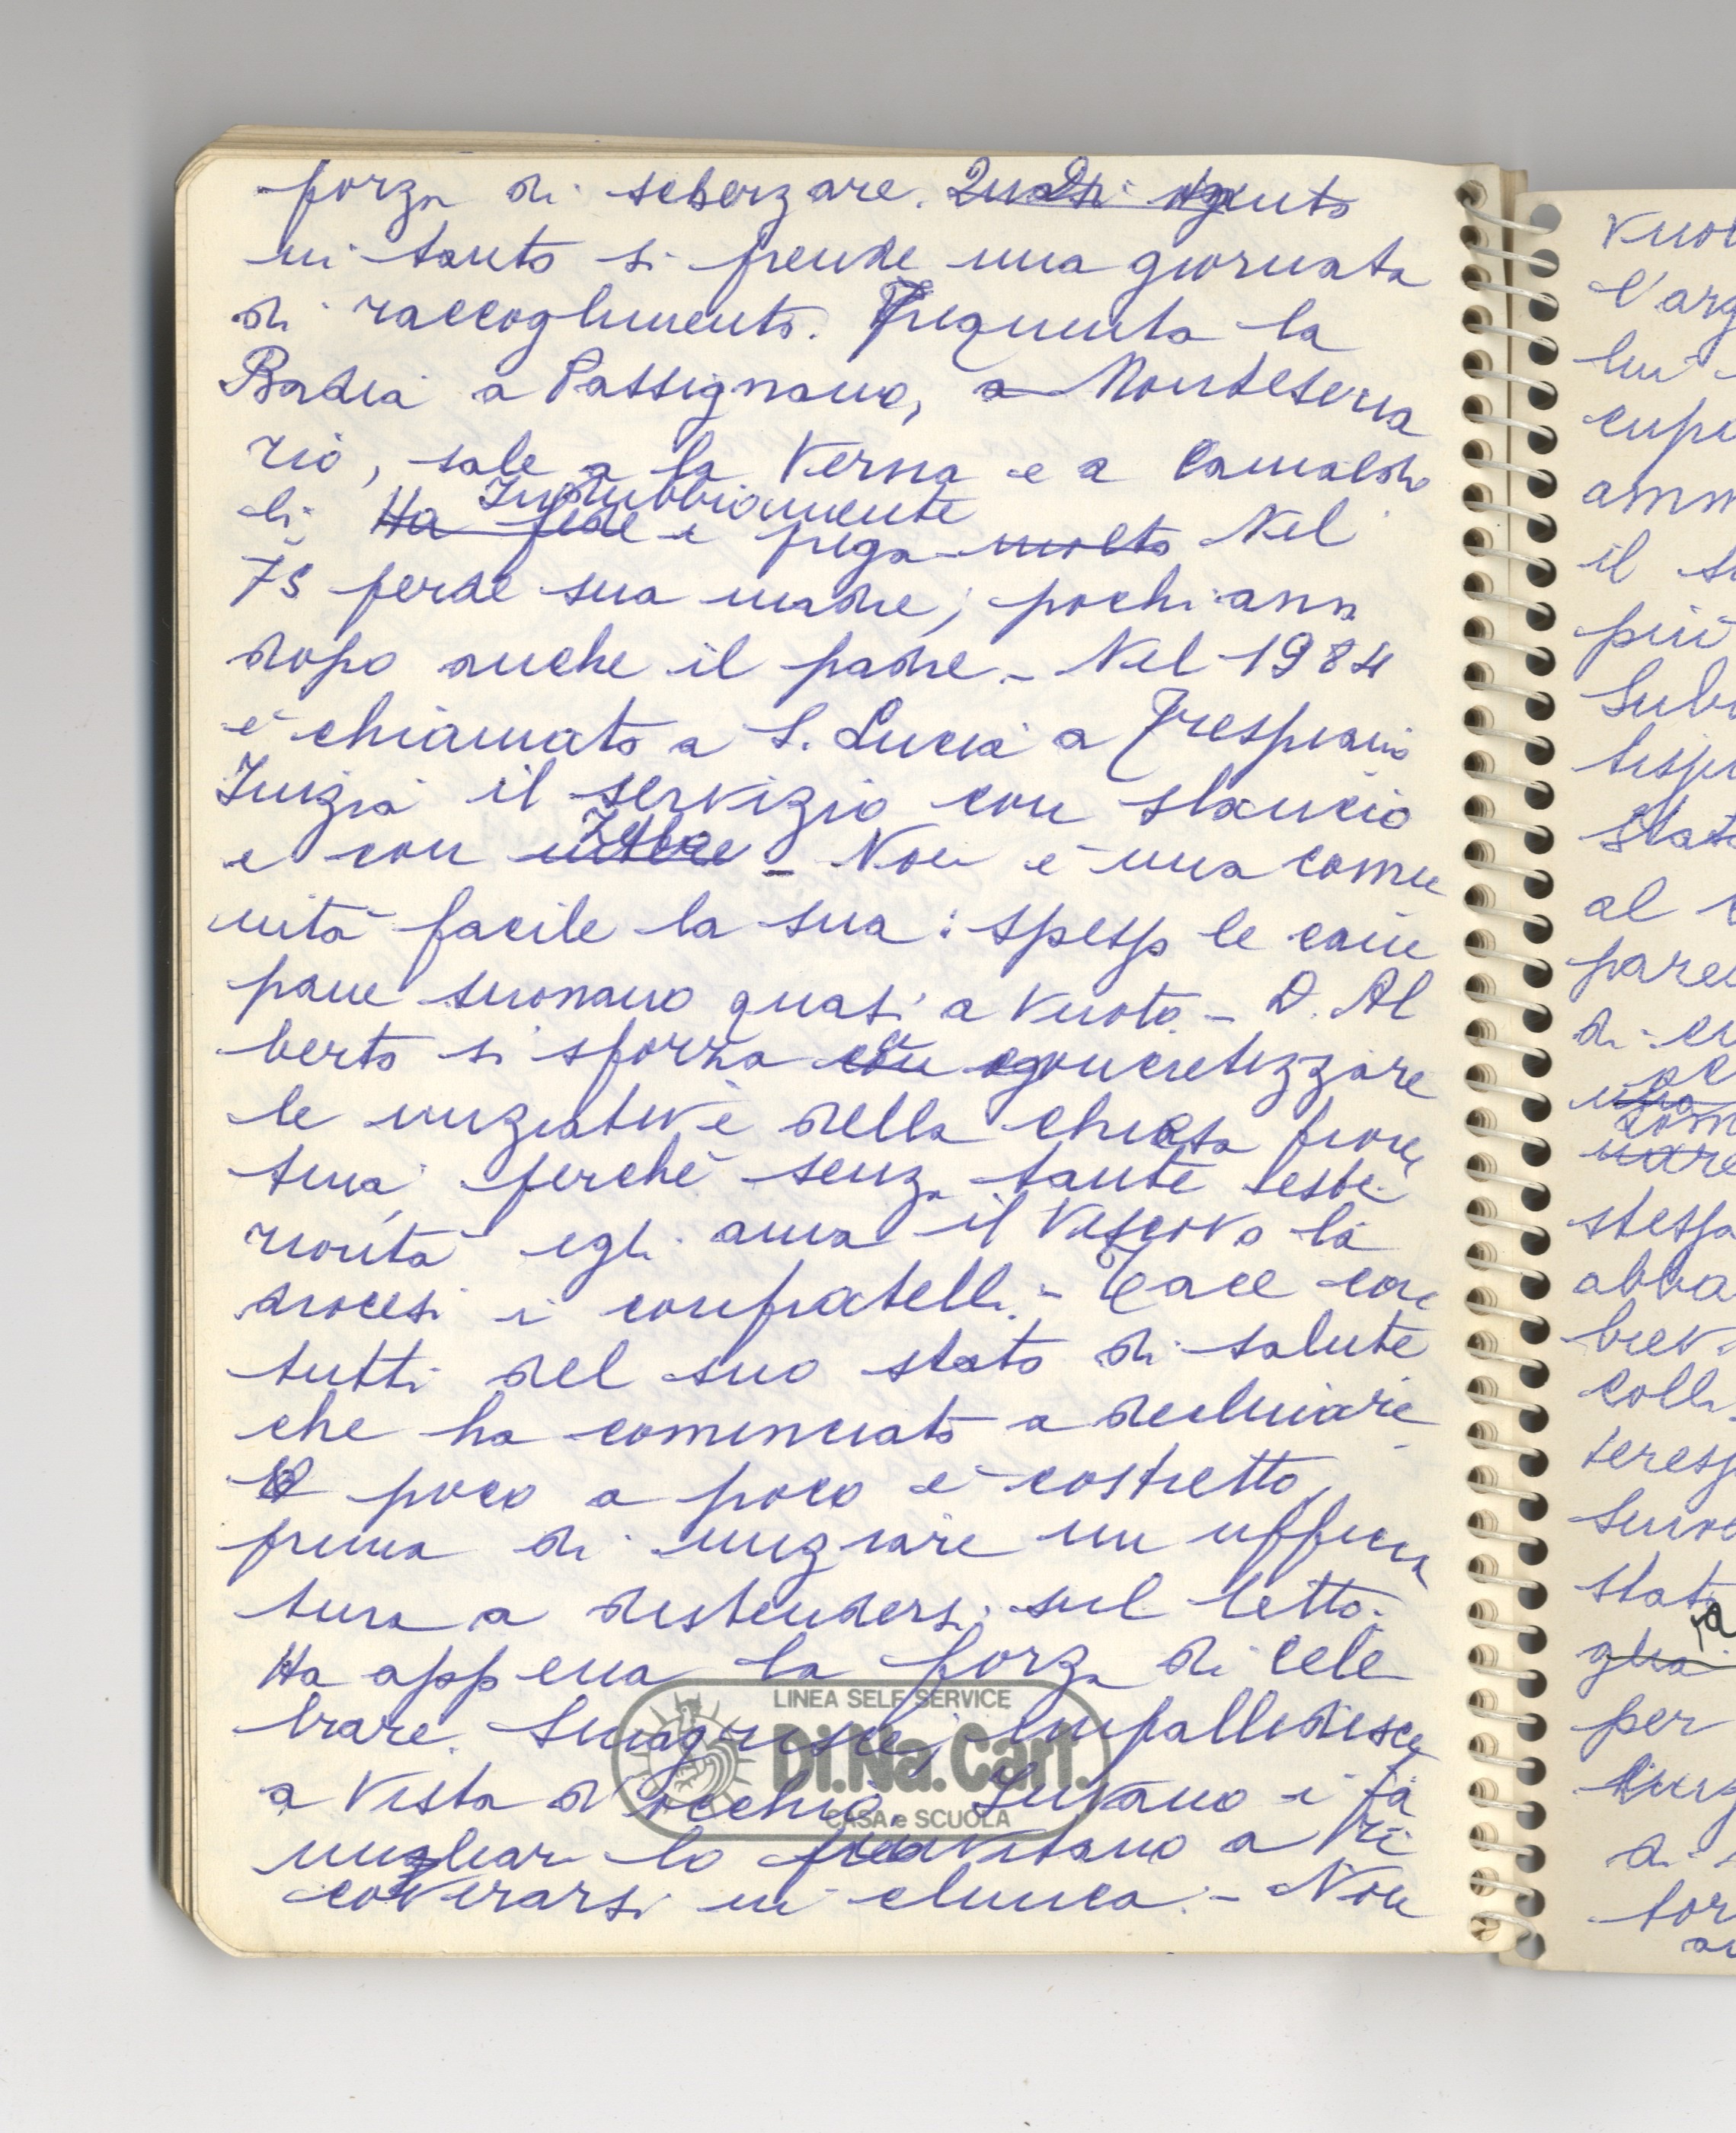 forza di scherzare. Di tanto
in tanto si prende una giornata
di raccoglimento. Frequenta la
Badia a Passignano, a Montesena
rio, sale a la Verna e a Camaldo
li Ha fede Indubbiamente e prega molto Nel
75 perde sua madre; pochi anni
dopo anche il padre. - Nel 1984
è chiamato a S. Lucia a Trespiano
Inizia il servizio con slancio
e con zelo - Non è una comu
nità facile la sua: spesso le cam
pane suonano quasi a vuoto. - D. Al
berto si sforza concretizzare
le iniziative della chiesa fioren
tina, perché senza tante este
riorità egli ama il Vescovo la
diocesi i confratelli. - Tace con
tutti del suo stato di salute
che ha cominciato a declinare
poco a poco è costretto,
prima di iniziare un ufficia
tura a distendersi sul letto.
Ha appena la forza di cele
brare. Smagrisce, impallidisce
a vista d'occhio. Invano i fa
migliari lo invitano a ri
coverarsi in clinica. - Non
LINEA SELF SERVICE
Di.Na.Cart.
CASA e SCUOLA
vuol
l'arg
lui
cupa
amm
il su
più
Subi
State
al
pare
di
stessa
abba
brev
colli
teress
Suoi
stat
per
di
tor